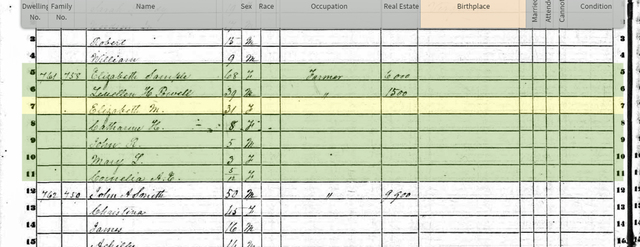 Dwelling No. Family No. Name Sex Race Occupation Real Estate Birthplace Married Attend Cannot Condition
3 Robert 15 M 3
4 William 9 M 4
5 761 758 Elizabeth Sample 68 F Farmer 6000 5
6 H Powell 39 M " 1500 6
7 Elizabeth M. 31 F 7
8 Catharine H. 8 F 8
9 John R. 5 M 9
10 Mary L. 3 F 10
11 Cornelia A. 5/12 F 11
12 762 John A Smith 50 M " 9500 12
13 Christina 45 F 13
14 James 16 M 14
15 Achilles 14 M 15